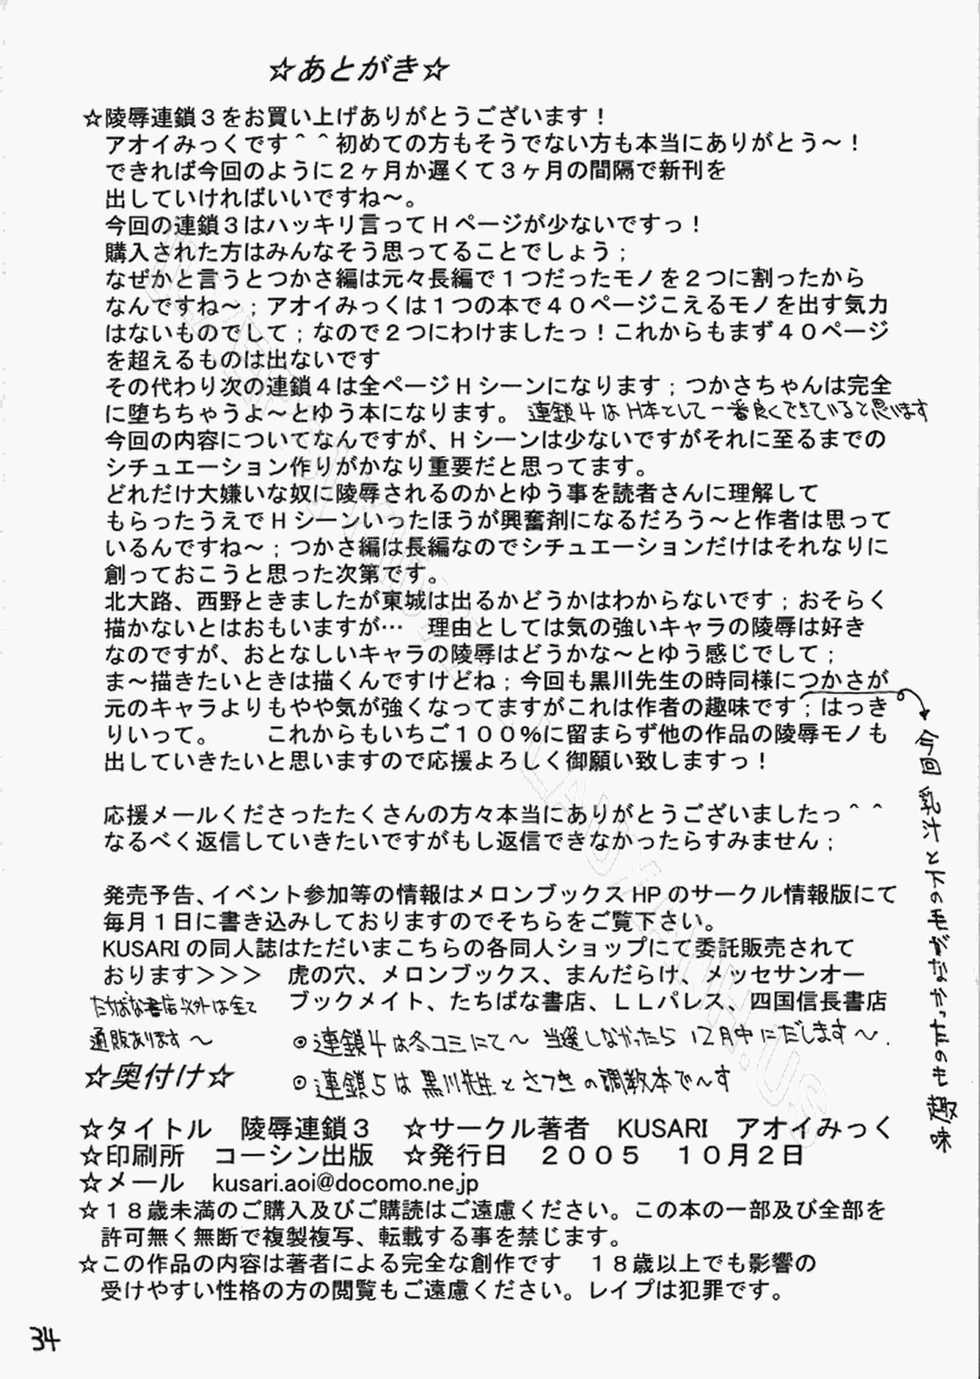 ☆あとがき☆
☆陵辱連鎖３をお買い上げありがとうございます！
アオイみっくです＾＾初めての方もそうでない方も本当にありがとう～！
できれば今回のように２ヶ月か遅くて３ヶ月の間隔で新刊を
出していければいいですね～。
今回の連鎖３はハッキリ言ってＨページが少ないですっ！
購入された方はみんなそう思ってることでしょう；
なぜかと言うとつかさ編は元々長編で１つだったモノを２つに割ったから
なんですね～；アオイみっくは１つの本で４０ページこえるモノを出す気力
はないものでして；なので２つにわけましたっ！これからもまず４０ページ
を超えるものは出ないです
その代わり次の連鎖４は全ページＨシーンになります；つかさちゃんは完全
に堕ちちゃうよ～とゆう本になります。 連鎖４はＨ本として一番良くできていると思います
今回の内容についてなんですが、Ｈシーンは少ないですがそれに至るまでの
シチュエーション作りがかなり重要だと思ってます。
どれだけ大嫌いな奴に陵辱されるのかとゆう事を読者さんに理解して
もらったうえでＨシーンいったほうが興奮剤になるだろう～と作者は思って
いるんですね～；つかさ編は長編なのでシチュエーションだけはそれなりに
創っておこうと思った次第です。
北大路、西野ときましたが東城は出るかどうかはわからないです；おそらく
描かないとはおもいますが… 理由としては気の強いキャラの陵辱は好き
なのですが、おとなしいキャラの陵辱はどうかな～とゆう感じでして；
ま～描きたいときは描くんですけどね；今回も黒川先生の時同様につかさが
元のキャラよりもやや気が強くなってますがこれは作者の趣味です；はっき
りいって。 これからもいちご１００％に留まらず他の作品の陵辱モノも
出していきたいと思いますので応援よろしく御願い致しますっ！
今回乳汁と下の毛がなかったのも趣味
応援メールくださったたくさんの方々本当にありがとうございましたっ＾＾
なるべく返信していきたいですがもし返信できなかったらすみません；
発売予告、イベント参加等の情報はメロンブックスＨＰのサークル情報版にて
毎月１日に書き込みしておりますのでそちらをご覧下さい。
KUSARIの同人誌はただいまこちらの各同人ショップにて委託販売されて
おります＞＞＞ 虎の穴、メロンブックス、まんだらけ、メッセサンオー
ブックメイト、たちばな書店、ＬＬパレス、四国信長書店
たちばな書店以外は全て
通販あります～
◎連鎖４は冬コミにて～ 当選しなかったら１２月中にだします～．
◎連鎖５は黒川先生とさつきの調教本で～す
☆奥付け☆
☆タイトル 陵辱連鎖３ ☆サークル著者 KUSARI アオイみっく
☆印刷所 コーシン出版 ☆発行日 ２００５ １０月２日
☆メール kusari.aoi@docomo.ne.jp
☆１８歳未満のご購入及びご購読はご遠慮ください。この本の一部及び全部を
許可無く無断で複製複写、転載する事を禁じます。
☆この作品の内容は著者による完全な創作です １８歳以上でも影響の
受けやすい性格の方の閲覧もご遠慮ください。レイプは犯罪です。
34